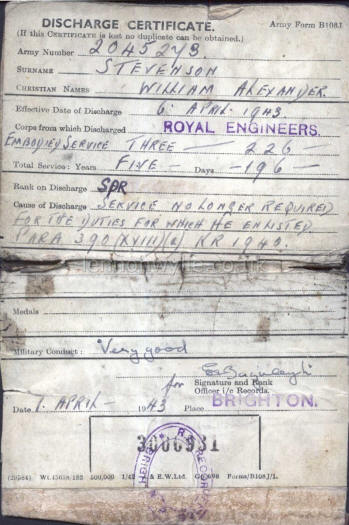 DISCHARGE CERTIFICATE. Army Form B108J
(If this Certificate is lost no duplicate can be obtained.)
Army Number 2045273.
SURNAME STEVENSON
CHRISTIAN NAMES WILLIAM ALEXANDER.
Effective Date of Discharge 6. APRIL. 1943.
Corps from which Discharged ROYAL ENGINEERS.
EMBODIED SERVICE THREE — 226
Total Service: Years FIVE — Days —196—
Rank on Discharge SPR
Cause of Discharge SERVICE NO LONGER REQUIRED
FOR THE DUTIES FOR WHICH HE ENLISTED
PARA 390 (XVIII)(a) KR 1940.
Medals
Military Conduct: Very good
for Signature and Rank
Officer i/c Records.
Date 1. APRIL 1943 Place BRIGHTON.
3000931
500,000 1/42 & E.W.Ltd. Forms/B108J/1.